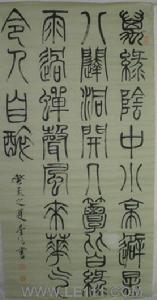 萬綠陰中小亭避暑
八闥洞開几簟皆綠
雨過蟬聲風來華气
令人自醉